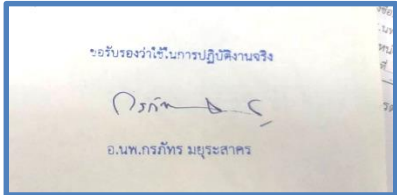 ขอรับรองว่าใช้ในการปฏิบัติงานจริง
อ.นพ.กรภัทร มยุระสาคร